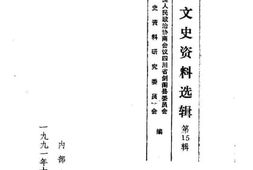 文史资料选辑
第15辑
国人民政治协商会议四川省剑阁县委员会
史资料研究委员会
编
内部
一九九一年